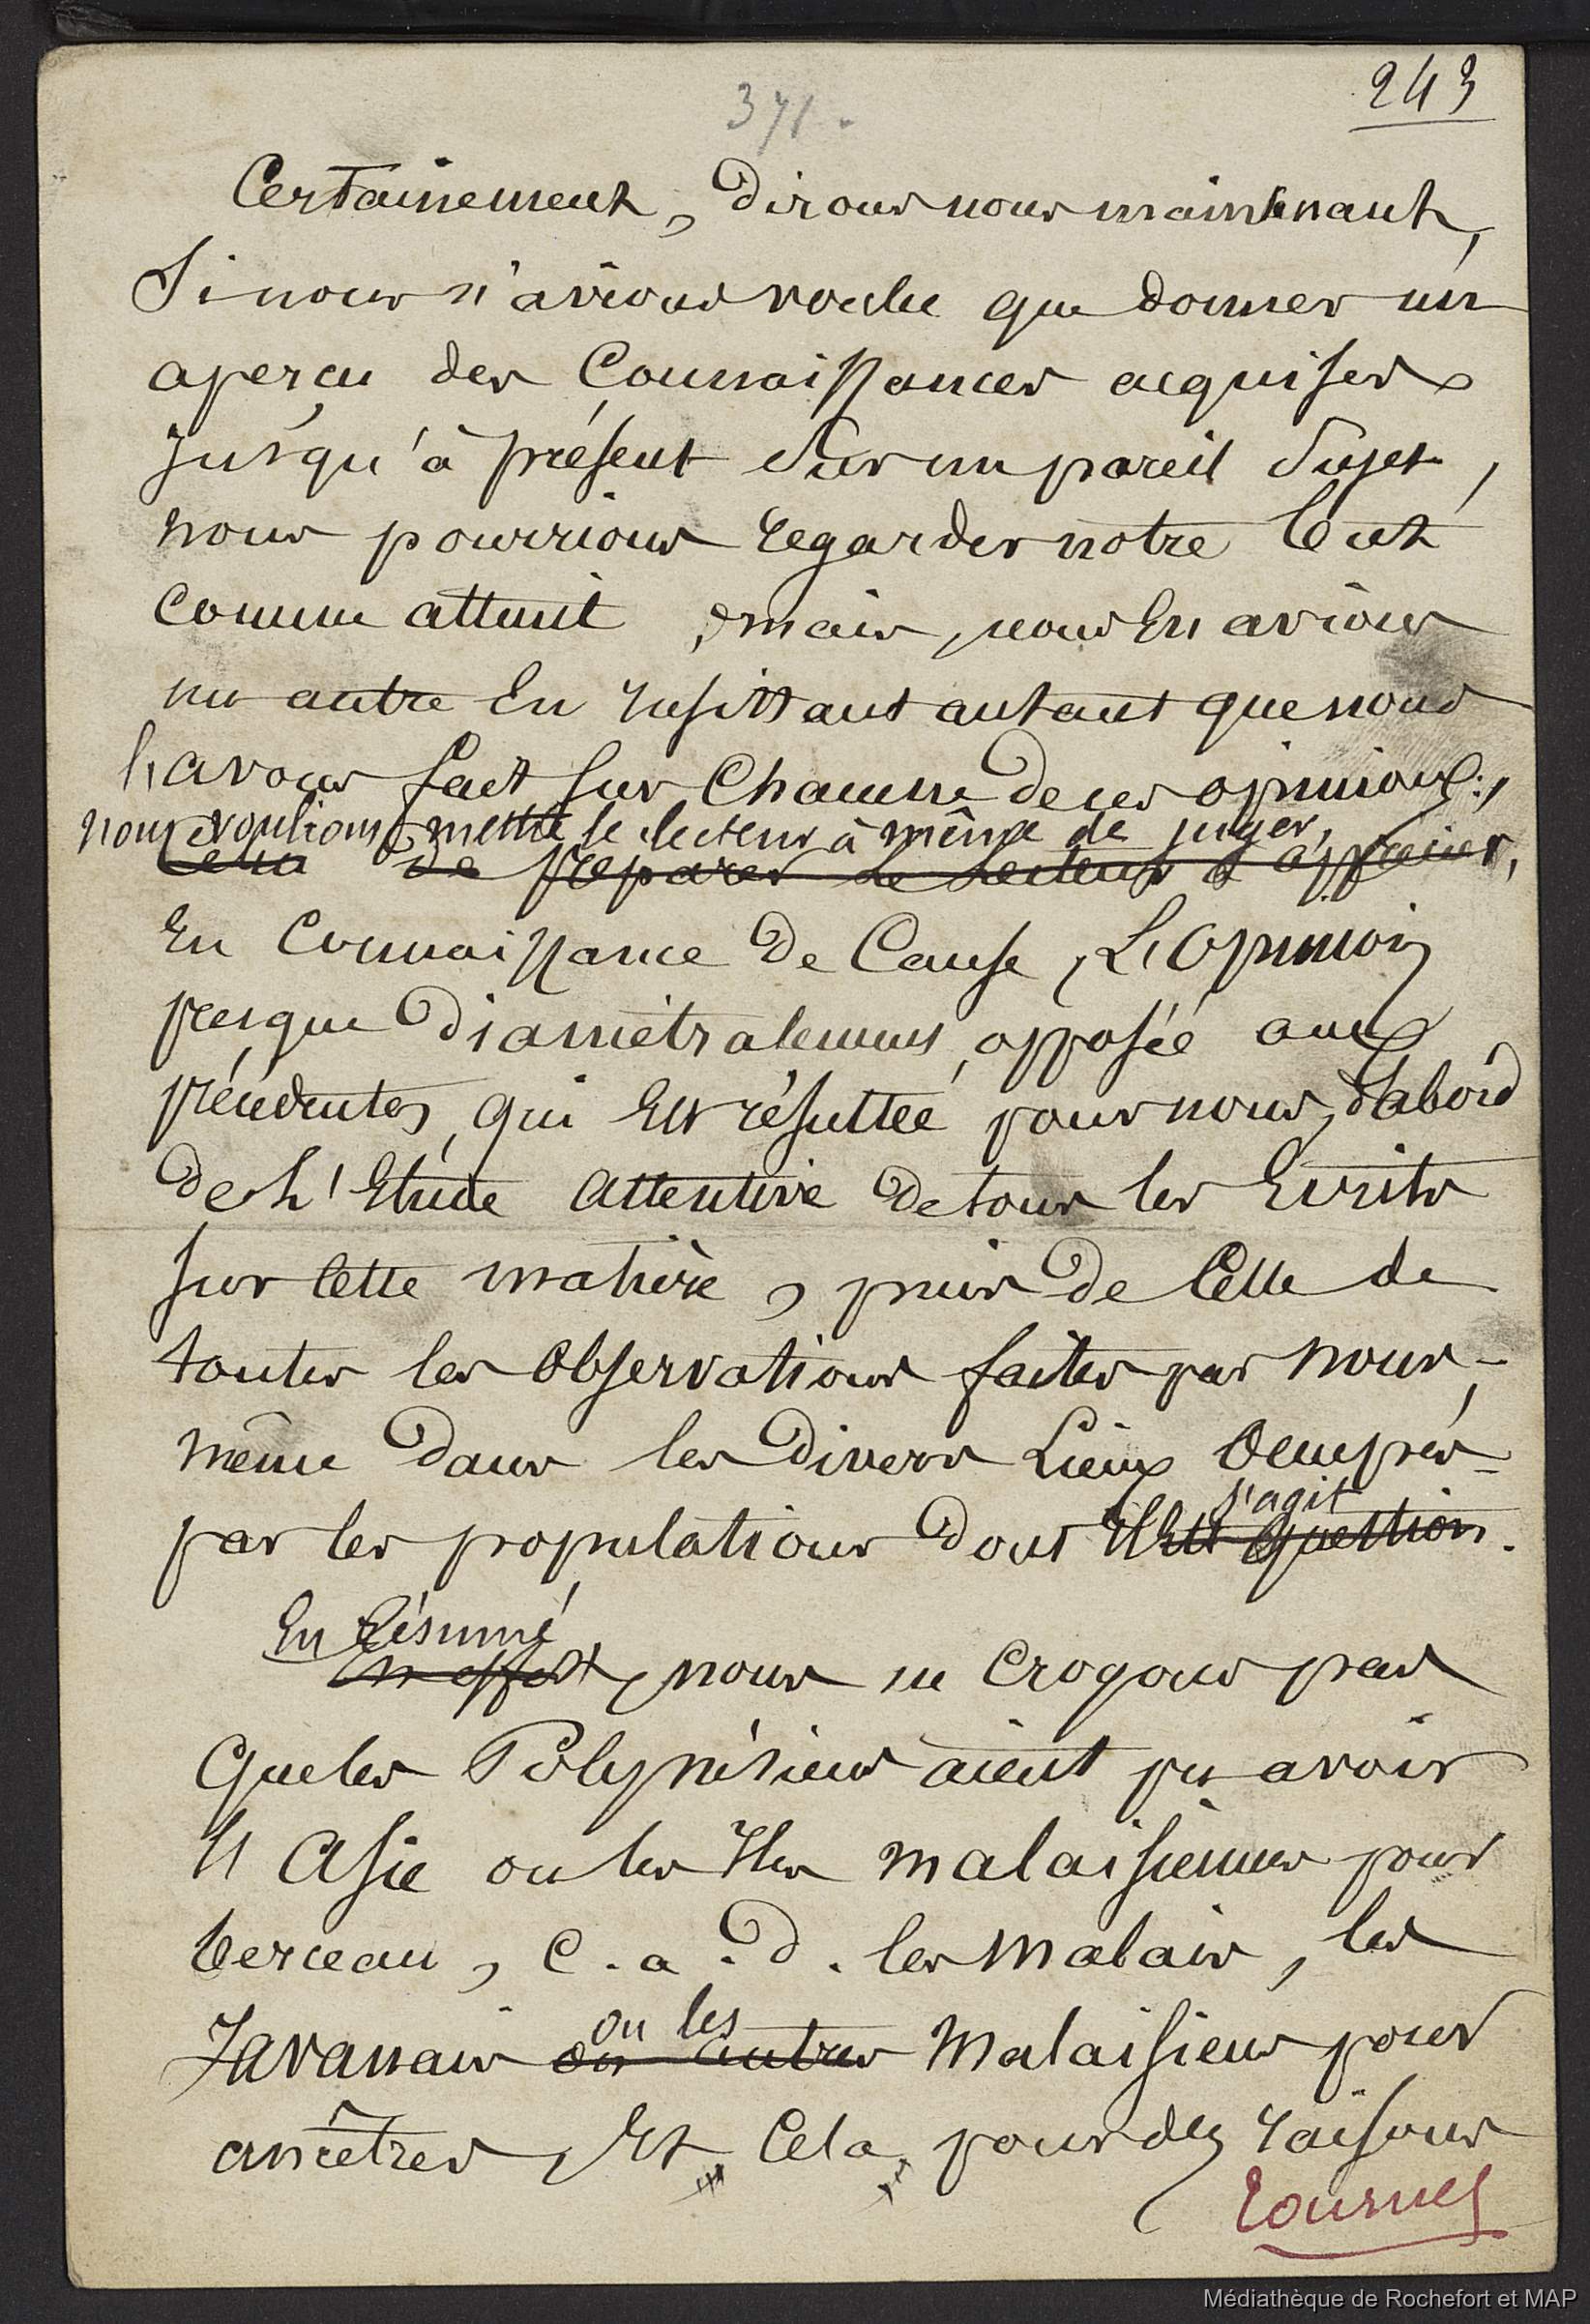 243
371.
Certainement, dirons nous maintenant,
Si nous n'avions voulu que donner un
aperçu des Connaissances acquises
jusqu'à présent sur un pareil sujet,
nous pourrions regarder notre but
comme atteint, mais, nous en avions
un autre en insistant autant que nous
l'avons fait sur chacune de ces opinions,
nous voulions mettre le lecteur à même de juger,
de préparer le Lecteur à apprécier,
en Connaissance de Cause, L'opinion
presque diamétralement opposée aux
précédentes, qui est résultée pour nous, d'abord
de L'Etude attentive de tous les Ecrits
sur cette matière, puis de celle de
toutes les observations faites par nous-
même dans les divers Lieux occupés
s'agit
par les populations dont il est question.
En Résumé
En effet, nous ne croyons pas
que les Polynésiens aient pu avoir
l'Asie ou les Iles malaisiennes pour
berceau, c.a.d. les malais, les
ou les
Javanais ou autres Malaisiens pour
ancêtres, Et Cela, pour des raisons
tournez
Médiathèque de Rochefort et MAP